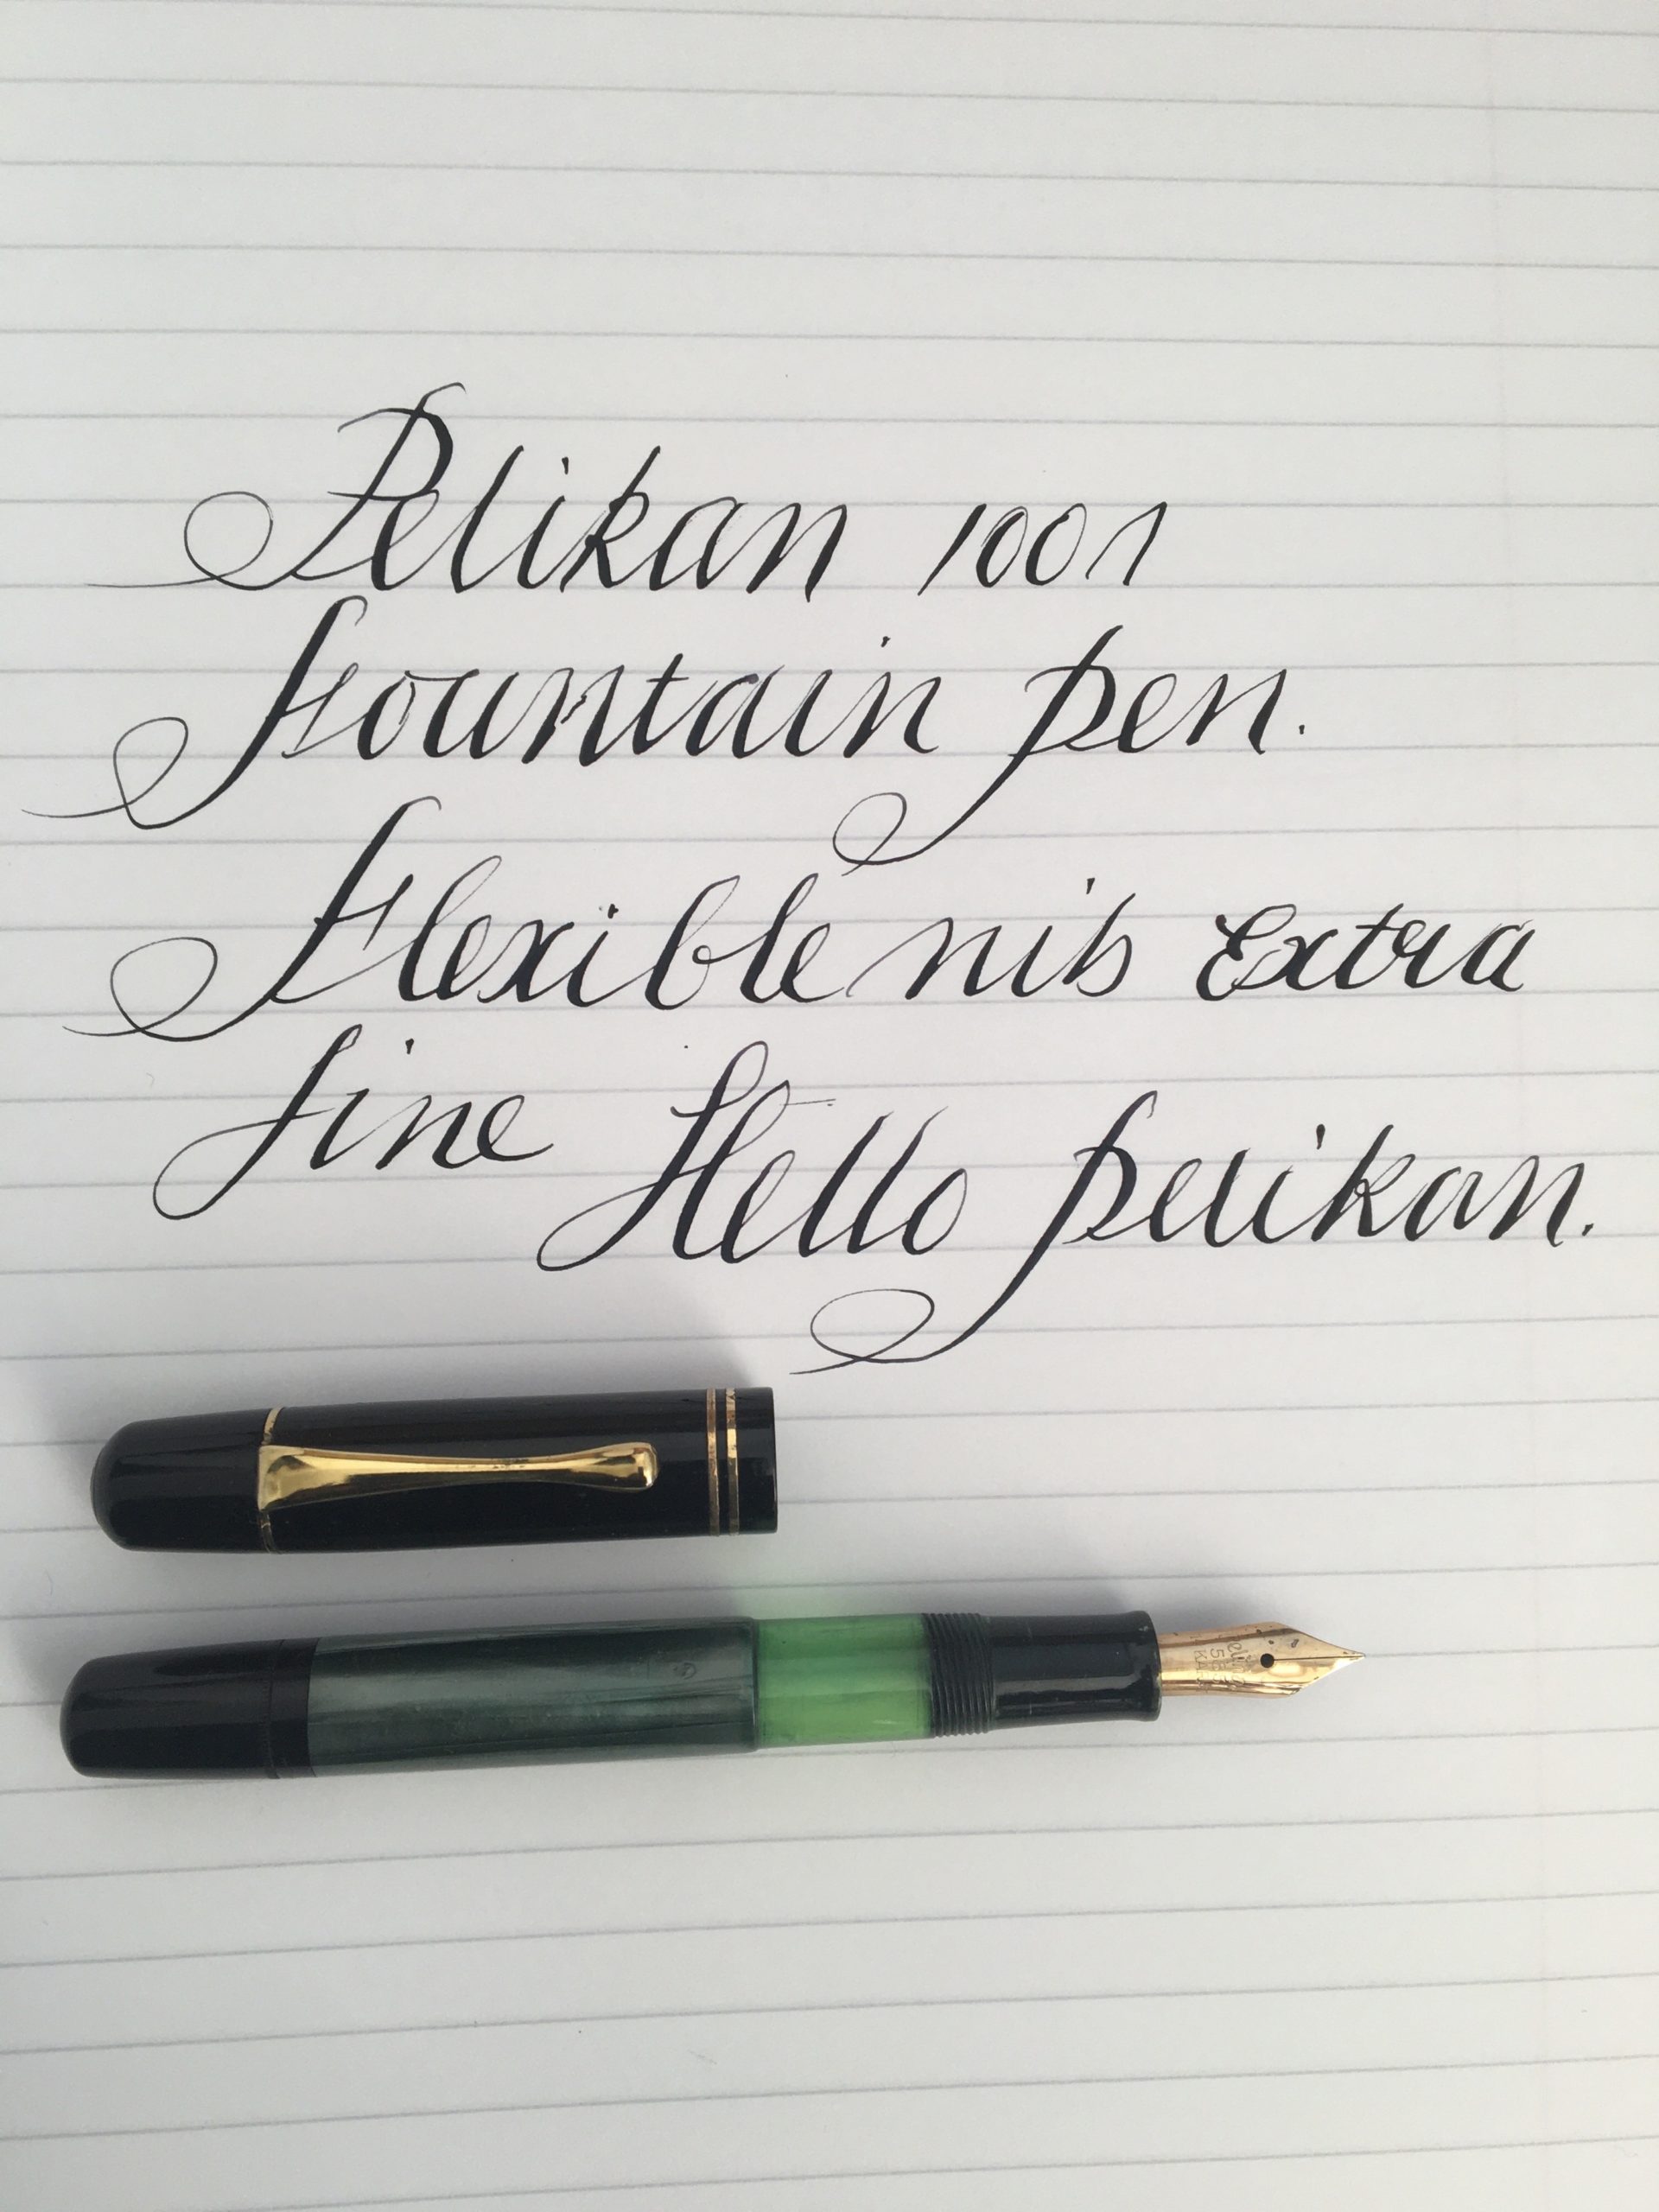 Pelikan 1001
fountain pen.
Flexible nib Extra
fine Hello pelikan.